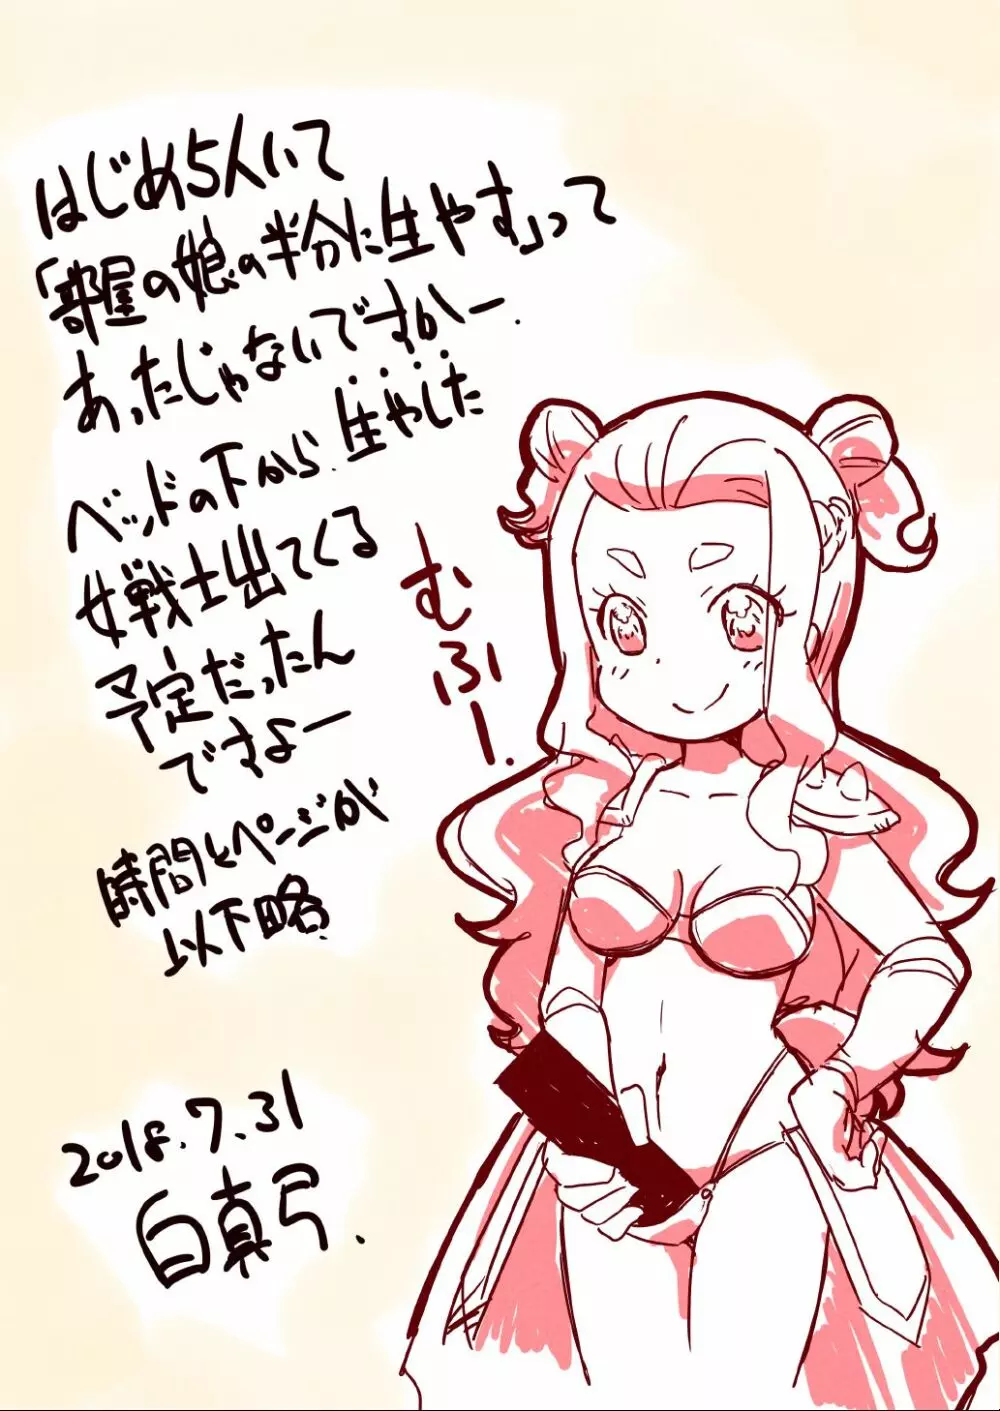 はじめ5人いて
「部屋の娘の半分に生やす」って
あったじゃないですかー.
ベッドの下から.生やした
女戦士出てくる
予定だったん
ですよー
時間とページが
以下略.
むふー.
2018.7.31
白真弓.